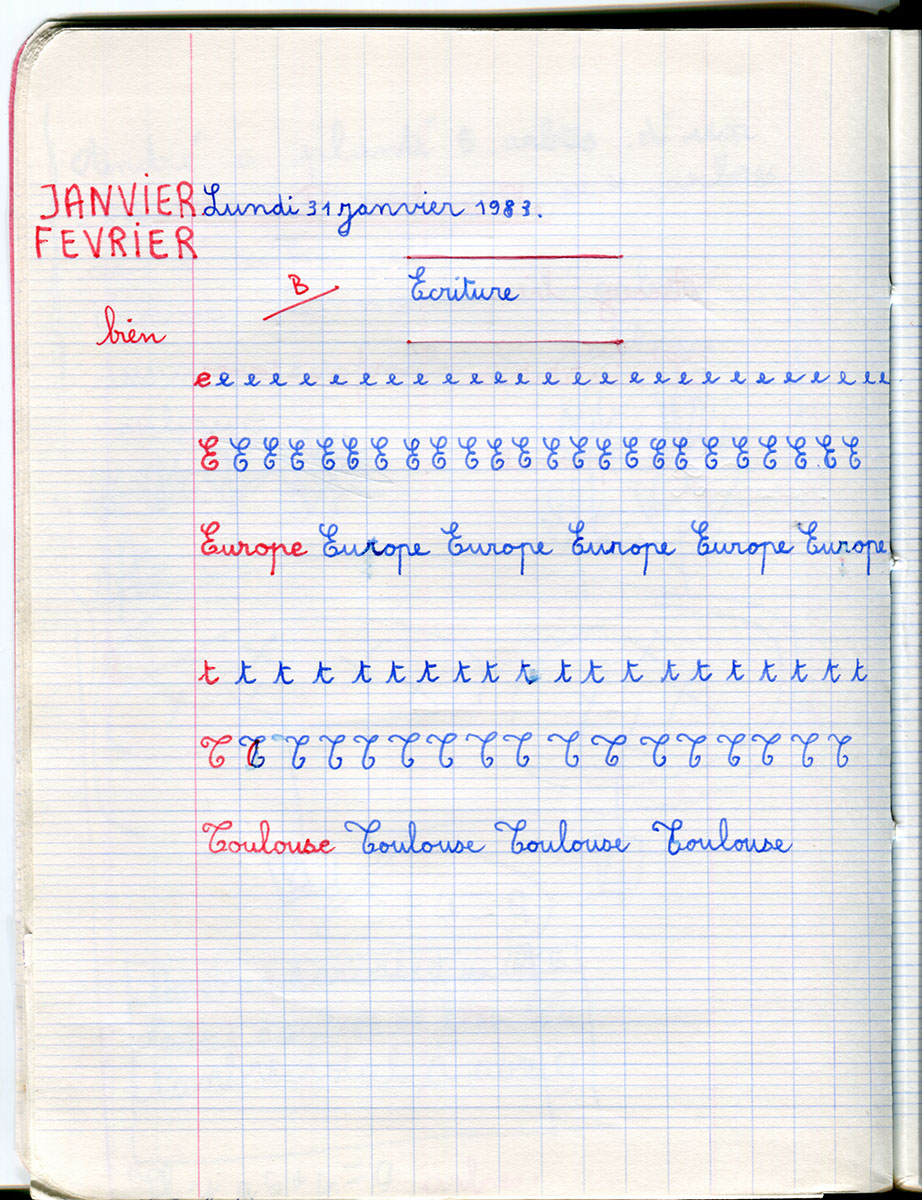 JANVIER Lundi 31 janvier 1983.
FEVRIER
B Ecriture
bien
e e e e e e e e e e e e e e e e e e e e e e e e e e e
E E E E E E E E E E E E E E E E E E E E E E E E
Europe Europe Europe Europe Europe Europe
t t t t t t t t t t t t t t t t t t t t
T T T T T T T T T T T T T T T T T
Toulouse Toulouse Toulouse Toulouse